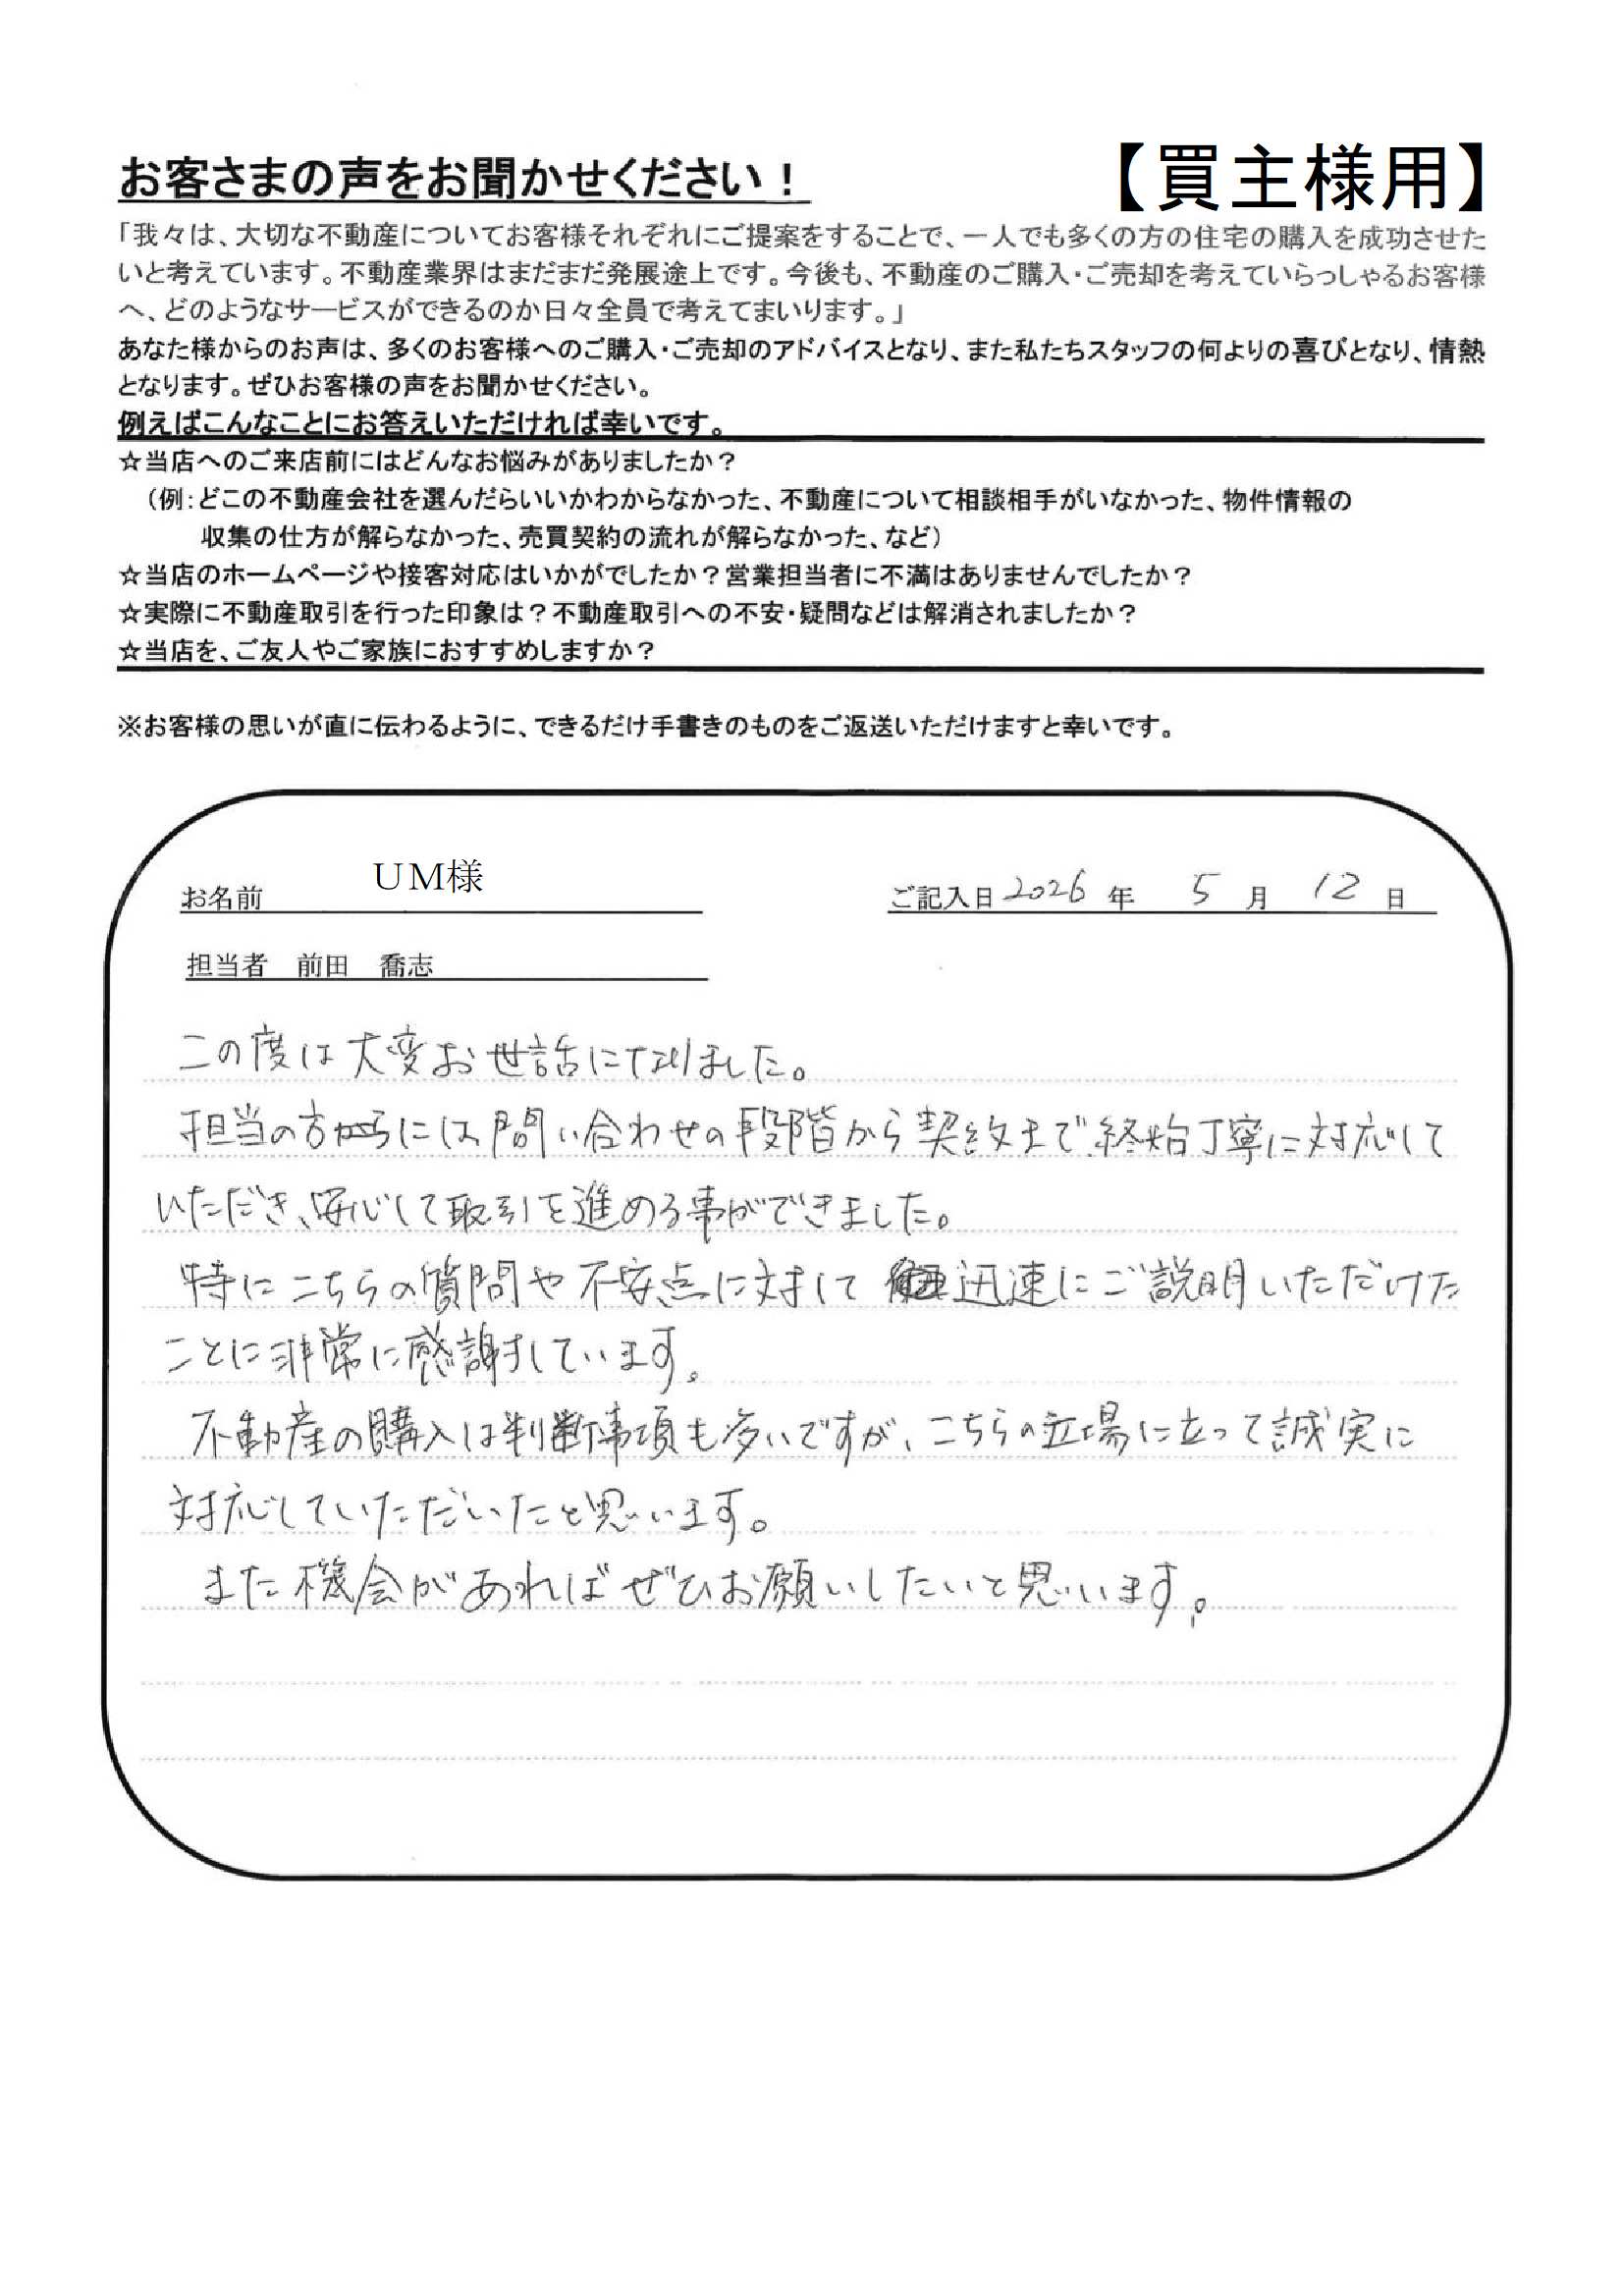 お客さまの声をお聞かせください！
【買主様用】
「我々は、大切な不動産についてお客様それぞれにご提案をすることで、一人でも多くの方の住宅の購入を成功させた
いと考えています。不動産業界はまだまだ発展途上です。今後も、不動産のご購入・ご売却を考えていらっしゃるお客様
へ、どのようなサービスができるのか日々全員で考えてまいります。」
あなた様からのお声は、多くのお客様へのご購入・ご売却のアドバイスとなり、また私たちスタッフの何よりの喜びとなり、情熱
となります。ぜひお客様の声をお聞かせください。
例えばこんなことにお答えいただければ幸いです。
☆当店へのご来店前にはどんなお悩みがありましたか？
（例：どこの不動産会社を選んだらいいかわからなかった、不動産について相談相手がいなかった、物件情報の
収集の仕方が解らなかった、売買契約の流れが解らなかった、など）
☆当店のホームページや接客対応はいかがでしたか？営業担当者に不満はありませんでしたか？
☆実際に不動産取引を行った印象は？不動産取引への不安・疑問などは解消されましたか？
☆当店を、ご友人やご家族におすすめしますか？
※お客様の思いが直に伝わるように、できるだけ手書きのものをご返送いただけますと幸いです。
お名前 ＵＭ様
ご記入日 2026 年 5 月 12 日
担当者 前田 喬志
この度は大変お世話になりました。
担当の方からには問い合わせの段階から契約まで終始丁寧に対応して
いただき、安心して取引を進める事ができました。
特にこちらの質問や不安点に対して 迅速にご説明いただけた
ことに非常に感謝しています。
不動産の購入は判断事項も多いですが、こちらの立場に立って誠実に
対応していただいたと思います。
また機会があればぜひお願いしたいと思います。